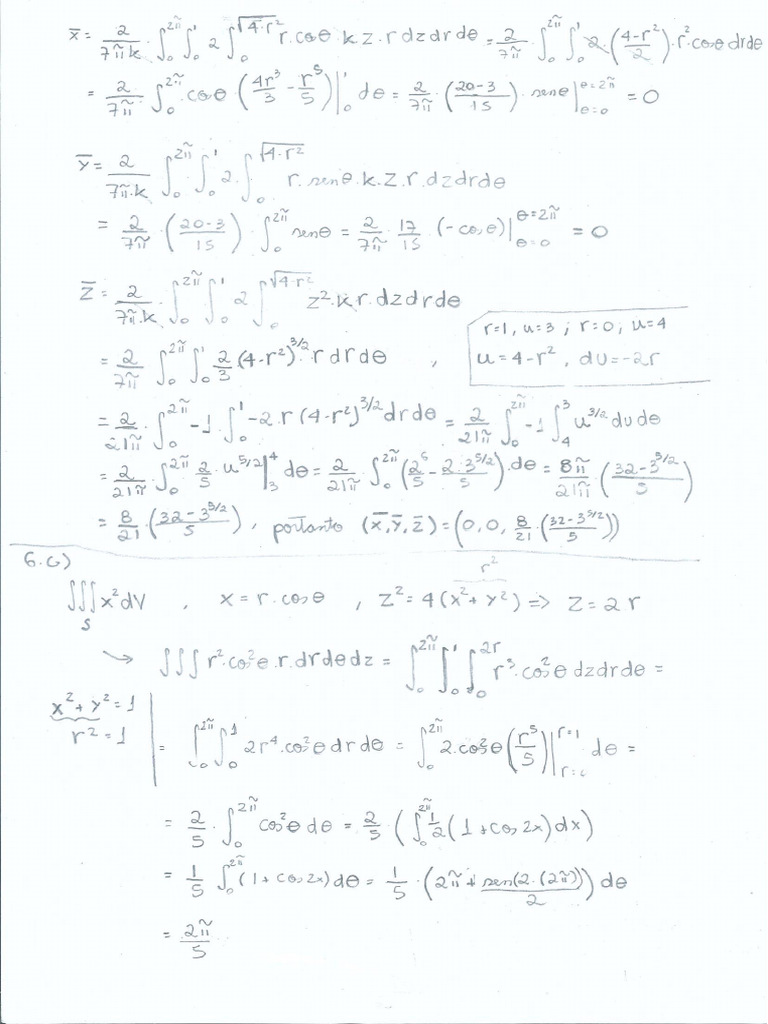 x̄ = 2/(7πk) · ∫₀^2π ∫₀^1 2 ∫₀^√(4-r²) r·cosθ·k·z·r dz dr dθ = 2/(7π) · ∫₀^2π ∫₀^1 2·((4-r²)/2)·r²cosθ dr dθ
= 2/(7π) ∫₀^2π cosθ · (4r³/3 - r⁵/5)|₀^1 dθ = 2/(7π) · ((20-3)/15) · senθ|θ=0^θ=2π = 0
ȳ = 2/(7π·k) ∫₀^2π ∫₀^1 2·∫₀^√(4-r²) r·senθ·k·z·r·dz dr dθ
= 2/(7π) · ((20-3)/15) · ∫₀^2π senθ = 2/(7π) · 17/15 · (-cosθ)|θ=0^θ=2π = 0
z̄ = 2/(7π·k) · ∫₀^2π ∫₀^1 2 ∫₀^√(4-r²) z²·k r·dz dr dθ
r=1, u=3 ; r=0, u=4
= 2/(7π) ∫₀^2π ∫₀^1 2/3 (4-r²)^3/2 r dr dθ , u = 4-r², du = -2r
= 2/(21π) · ∫₀^2π -1·∫₀^1 -2·r (4-r²)^3/2 dr dθ = 2/(21π) ∫₀^2π -1 ∫₄^3 u^3/2 du dθ
= 2/(21π) · ∫₀^2π 2/5 · u^5/2|₃^4 dθ = 2/(21π) · ∫₀^2π (2⁶/5 - 2·3^5/2/5)·dθ = 8π/(21π) · ((32-3^5/2)/5)
= 8/21 · ((32-3^5/2)/5), portanto (x̄, ȳ, z̄) = (0, 0, 8/21 · ((32-3^5/2)/5))
6.c)
r²
∭_S x² dV , x = r·cosθ , z² = 4(x²+y²) => z = 2r
→ ∭ r²·cos²θ·r·dr dθ dz = ∫₀^2π ∫₀^1 ∫₀^2r r³·cos²θ dz dr dθ =
x²+y²=1
r²=1
= ∫₀^2π ∫₀^1 2r⁴·cos²θ dr dθ = ∫₀^2π 2·cos²θ (r⁵/5)|r=0^r=1 dθ =
= 2/5 · ∫₀^2π cos²θ dθ = 2/5 (∫₀^2π 1/2 (1+cos 2x) dx)
= 1/5 ∫₀^2π (1+cos 2x) dθ = 1/5 · (2π + sen(2·(2π))/2) dθ
= 2π/5